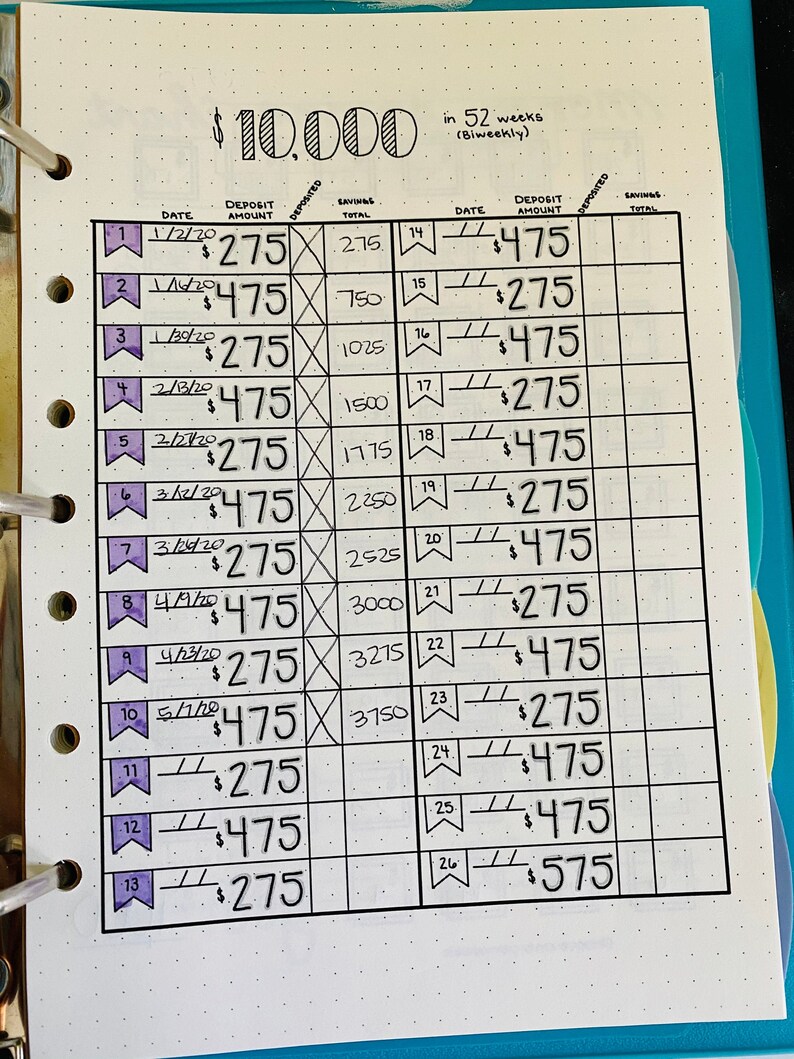 $10,000 in 52 weeks
(Biweekly)
DATE DEPOSIT AMOUNT DEPOSITED SAVINGS TOTAL DATE DEPOSIT AMOUNT DEPOSITED SAVINGS TOTAL
1 1/2/20 $275 275 14 // $475
2 1/16/20 $475 750 15 // $275
3 1/30/20 $275 1025 16 // $475
4 2/13/20 $475 1500 17 // $275
5 2/27/20 $275 1775 18 // $475
6 3/12/20 $475 2250 19 // $275
7 3/26/20 $275 2525 20 // $475
8 4/9/20 $475 3000 21 // $275
9 4/23/20 $275 3275 22 // $475
10 5/7/20 $475 3750 23 // $275
11 // $275 24 // $475
12 // $475 25 // $475
13 // $275 26 // $575